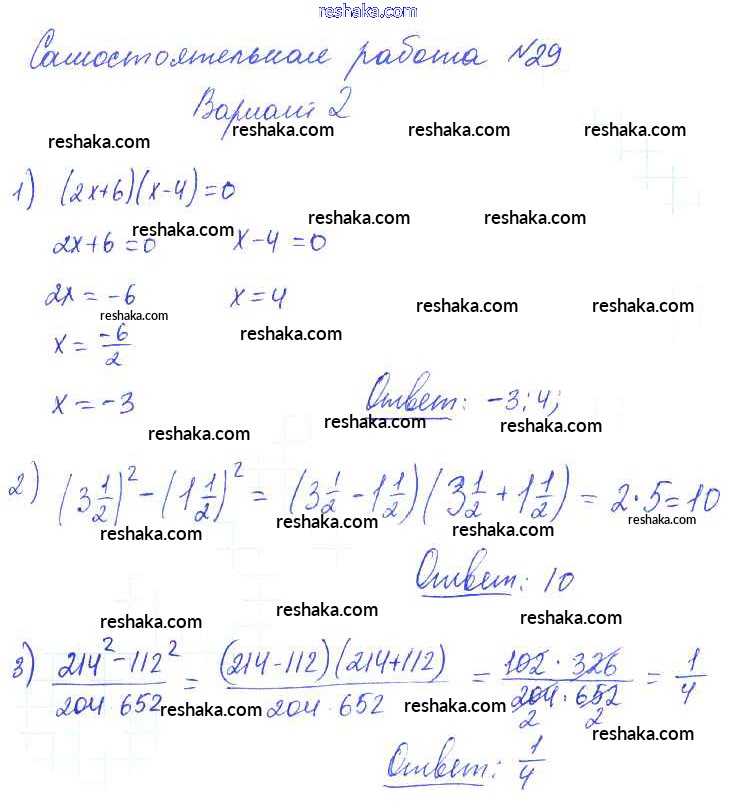 reshaka.com
Самостоятельная работа №29
Вариант 2
reshaka.com reshaka.com reshaka.com reshaka.com
1) (2x+6)(x-4)=0
reshaka.com reshaka.com reshaka.com
2x+6=0 x-4=0
2x = -6 x=4
reshaka.com reshaka.com reshaka.com
x = -6/2
reshaka.com
x = -3 Ответ: -3; 4;
reshaka.com reshaka.com reshaka.com
2) (3 1/2)² - (1 1/2)² = (3 1/2 - 1 1/2)(3 1/2 + 1 1/2) = 2·5=10
reshaka.com reshaka.com reshaka.com reshaka.com
Ответ: 10
reshaka.com reshaka.com reshaka.com
3) 214²-112² / 204·652 = (214-112)(214+112) / 204·652 = 102·326 / 204·652 = 1/4
2 2
reshaka.com reshaka.com reshaka.com
Ответ: 1/4